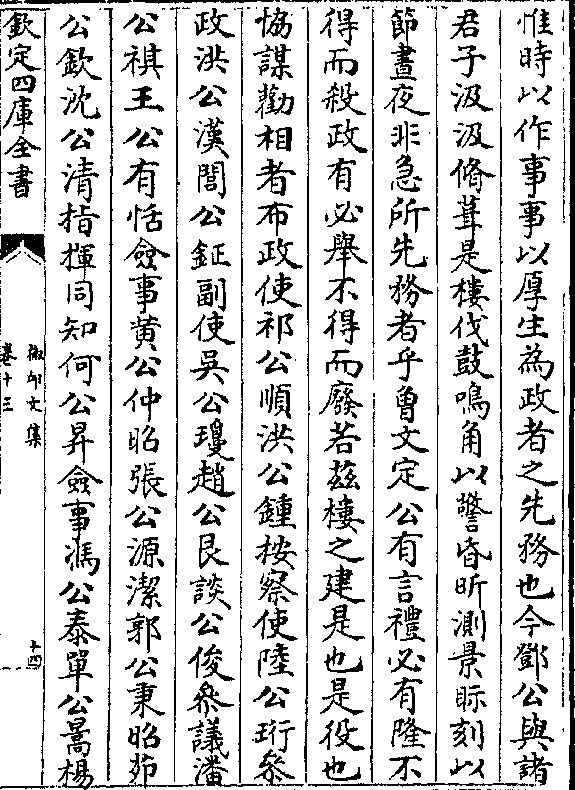 惟時以作事事以厚生為政者之先務也今鄧公與諸
君子汲汲脩葺是樓伐鼓鳴角以警昏昕測景眎刻以
節晝夜非急所先務者乎曾文定公有言禮必有隆不
得而殺政有必舉不得而廢若茲樓之建是也是役也
恊謀勸相者布政使祁公順洪公鍾按察使陸公珩叅
政洪公漢閻公鉦副使吳公瓊趙公艮談公俊叅議潘
公祺王公有恬僉事黄公仲昭張公源潔郭公秉昭茆
公欽沈公清指揮同知何公昇僉事馮公泰單公暠楊
欽定四庫全書
椒邱文集
卷十三
十四